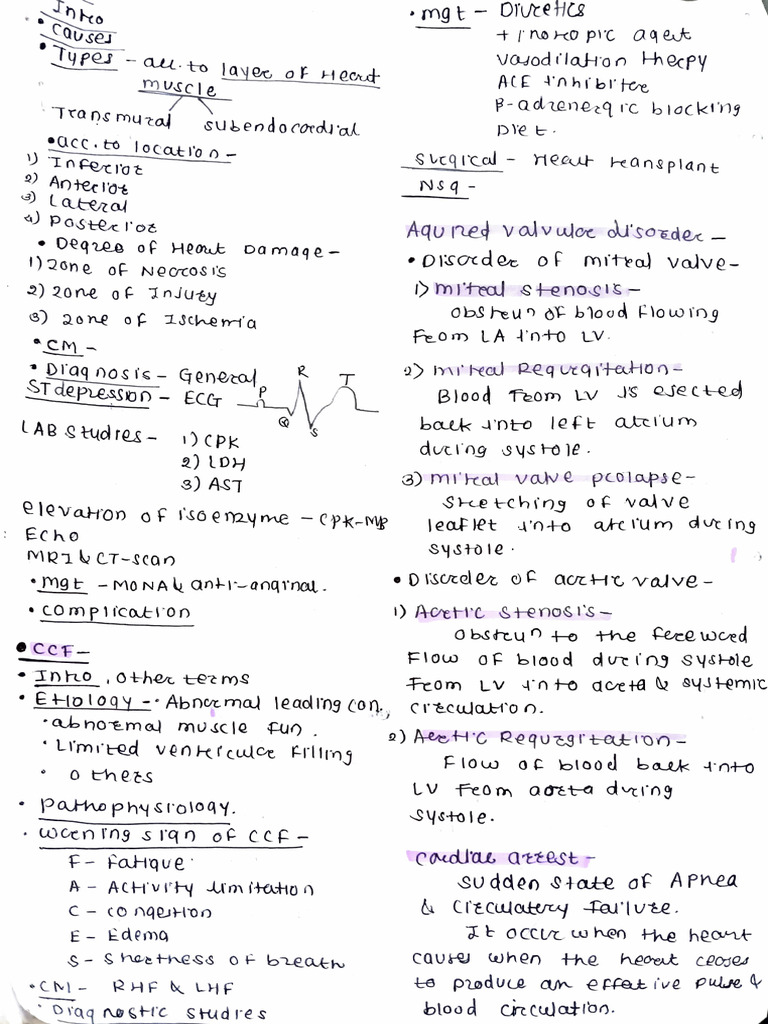 Intro
• Causes
• Types - acc. to layer of Heart
muscle
Transmural subendocordial
• acc. to location -
1) Inferior
2) Anterior
3) Lateral
4) Posterior
• Degree of Heart Damage -
1) zone of Necrosis
2) zone of Injury
3) zone of Ischemia
• CM -
• Diagnosis - General
ST depression - ECG
P Q R S T
LAB Studies - 1) CPK
2) LDH
3) AST
elevation of isoenzyme - CPK-MB
Echo
MRI & CT-scan
• mgt - MONA & anti-anginal.
• complication
• CCF -
• Intro, other terms
• Etiology - • Abnormal leading con.
• abnormal muscle fun.
• Limited ventricular filling
• others
• pathophysiology.
• warning sign of CCF -
F - fatique
A - Activity limitation
C - congestion
E - Edema
S - shortness of breath
• CM - RHF & LHF
• Diagnostic studies
• mgt - Diuretics
+ inotropic agent
vasodilation therpy
ACE inhibitor
β-adrenergic blocking
Diet.
surgical - Heart transplant
Nsg -
Aquired valvular disorder -
• Disorder of mitral valve -
1) mitral stenosis -
obstrun of blood flowing
from LA into LV.
2) mitral Regurgitation -
Blood from LV is ejected
back into left atrium
during systole.
3) mitral valve prolapse -
stretching of valve
leaflet into atrium during
systole.
• Disorder of aortic valve -
1) Aortic stenosis -
obstrun to the foreword
flow of blood during systole
from LV into aorta & systemic
circulation.
2) Aortic Regurgitation -
flow of blood back into
LV from aorta during
systole.
cardiac arrest -
sudden state of Apnea
& circulatory failure.
It occur when the heart
causes when the heart ceases
to produce an effective pulse &
blood circulation.